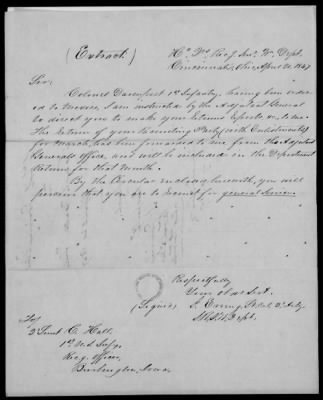 (Extract.)
Hd. Qrs. Recg. Serv. Wn. Dept.
Cincinnati, Ohio, April 20. 1847
Sir:
Colonel Davenport 1st Infantry, having been order-
ed to Mexico, I am instructed by the Adjutant General
to direct you to make your returns reports &c. to me.
The Return of your Recruiting Party (with Enlistments)
for March, has been forwarded to me from the Adjutant
Generals office and will be included in the Department
Return for that Month.
By the Circular enclosed herewith, you will
perceive that you are to recruit for general service.
Respectfully
Your obt. Sert.
(Signed)
To
2d Lieut C. Hall.
1st U.S. Infy.
Recg. officer,
Burlington, Iowa